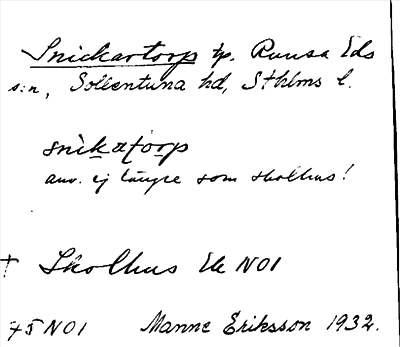 Snickartorp tp. Runsa Eds
s:n, Sollentuna hd, Sthlms l.
snikatorp
anv. ej längre som skolhus!
† Skolhus Ek NO1
75 NO1 Manne Eriksson 1932.